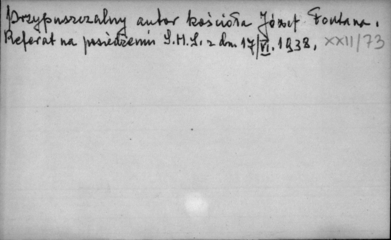 Przypuszczalny autor kościoła Józef Fontana.
Referat na posiedzeniu S.H.S. z dn. 17/VI. 1938. XXII/73